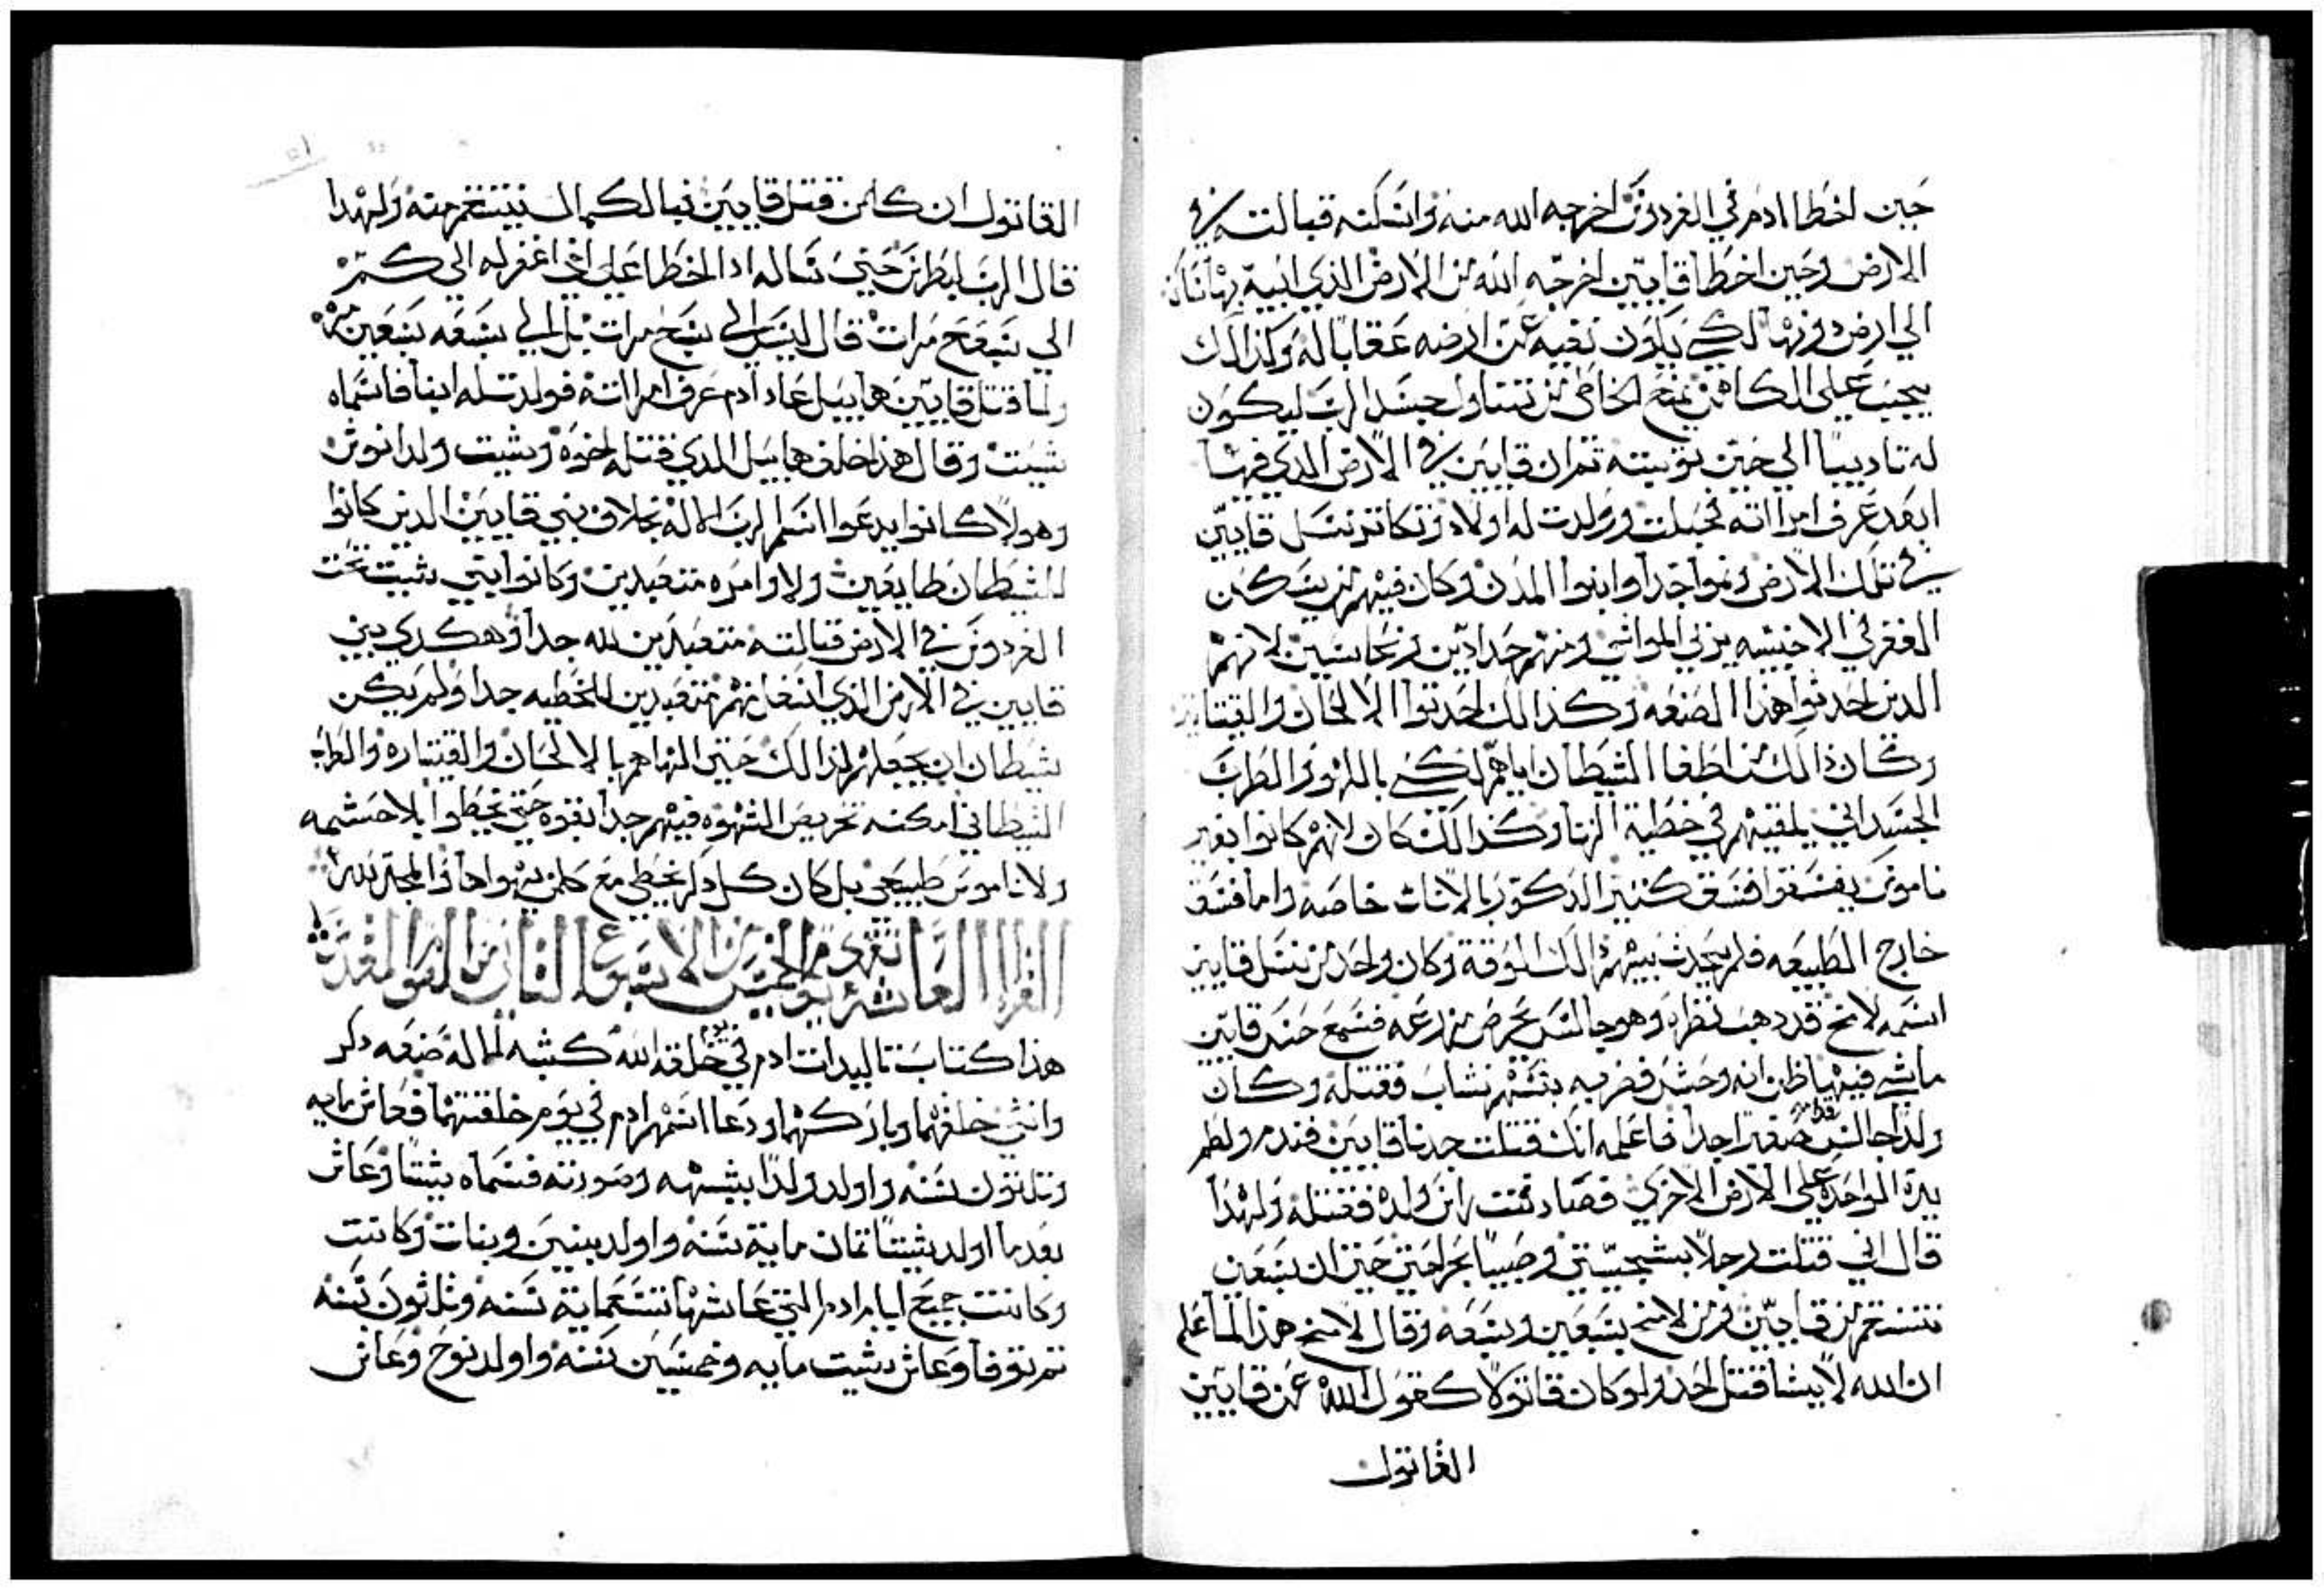 حين اخطا ادم في الفردوس اخرجه الله منه واسكنه قبالته في
الارض وحين اخطا قايين اخرجه الله من الارض الذي ابيه بها ساكن
الي ارض دونها لكي يكون نفيه عن ارضه عقابا له وكذالك
يجب على الكاهن يمنع الخاطي من تناول جسد الرب ليكون
له تاديبا الي حين توبته تم ان قايين في الارض الدي فيها
ابعد عرف امرااته فحبلت وولدت له اولاد وتكاتر نسل قايين
في تلك الارض ونموا جدا وابنوا المدن وكان فيهم من يسكن
القفر في الاخبيه يربي المواشي ومنهم حدادين ونحاسين لانهم
الدين احدثوا هذا الصنعه وكذالك احدتوا الالحان والقيتاره
وكان ذالك من اطغا الشيطان اياهم لكي باللهو والطرب
الجسداني يلقيهم في خطية الزنا وكذالك كان لانهم كانوا بغير
ناموس يفسقوا فسق كتير الدكور بالاناث خاصه واما فسق
خارج الطبيعه فلم يحدث بينهم دالك الوقت وكان واحد من نسل قايين
اسمه لامخ قد دهب نظره وهو جالس يحرص زرعه فسمع حس قايين
ماشي فيه ظن انه وحش فضربه بسهم نشاب فقتله وكان
ولدا جالس قدامه صغيرا جدا فاعلمه انك قتلت جدنا قايين فندم ولطم
يده الواحده على الاخري فصادفت راس ولده فقتله ولهدا
قال اني قتلت رجلا بشجتي وصبيا بجراحتي حين ان سبعين
تنتقم من قايين ومن لامخ سبعين وسبعه وقال لامخ هذا لما علم
ان الله لا يشا قتل احد ولو كان قاتولا كقول الله عن قايين
القاتول
القاتول ان كلمن قتل قايين فبالكمال ينتقم منه ولهدا
قال الرب لبطرس حين ساله ادا اخطا علي اخي اغفر له الي كم مره
الي سبع مرات قال ليس الي سبع مرات بل الي سبعه سبعين مره
ولما قتل قايين هابيل عاد ادم عرف امرااته فولدت له ابنا فاسماه
شيت وقال هذا خلف هابيل الدي قتله اخوه وشيت ولد انوش
وهولا كانوا يدعوا اسم الرب الاله بخلاف بني قايين الدين كانوا
للشيطان طايعين ولاوامره متعبدين وكانوا بني شيت تحت
الفردوس في الارض قبالته متعبدين لله جدا وهكدي بني
قايين في الارض الذي اسفل منهم متعبدين للخطيه جدا ولم يكن
شيطان ان يجعلهم لذالك حتى الهاهم بالالحان والقيتاره والطرب
الشيطاني امكنه تحريض الشهوه فيهم جدا بقوه حتي يخطوا بلا حشمه
ولا ناموس طبيعي بل كان كل دكر يخطي مع كلمن يهواها والمجد لله
القراه العاشره تقري يوم الخميس من الاسبوع التاني من الصوم المقدس
هذا كتاب تاليدات ادم في يوم خلقه الله كشبه الله صنعه دكر
وانثى خلقهما وباركهما ودعا اسمهم ادم في يوم خلقتهما فعاش مايه
وتلاتون سنه واولد ولدا بشبهه وصورته فسماه شيتا وعاش
بعد ما اولد شيتا تمان ماية سنه واولد بنين وبنات وكانت
وكانت جميع ايام ادم التي عاشها تسعماية سنه وتلاثون سنه
تم توفا وعاش شيت مايه وخمسين سنه واولد نوح وعاش